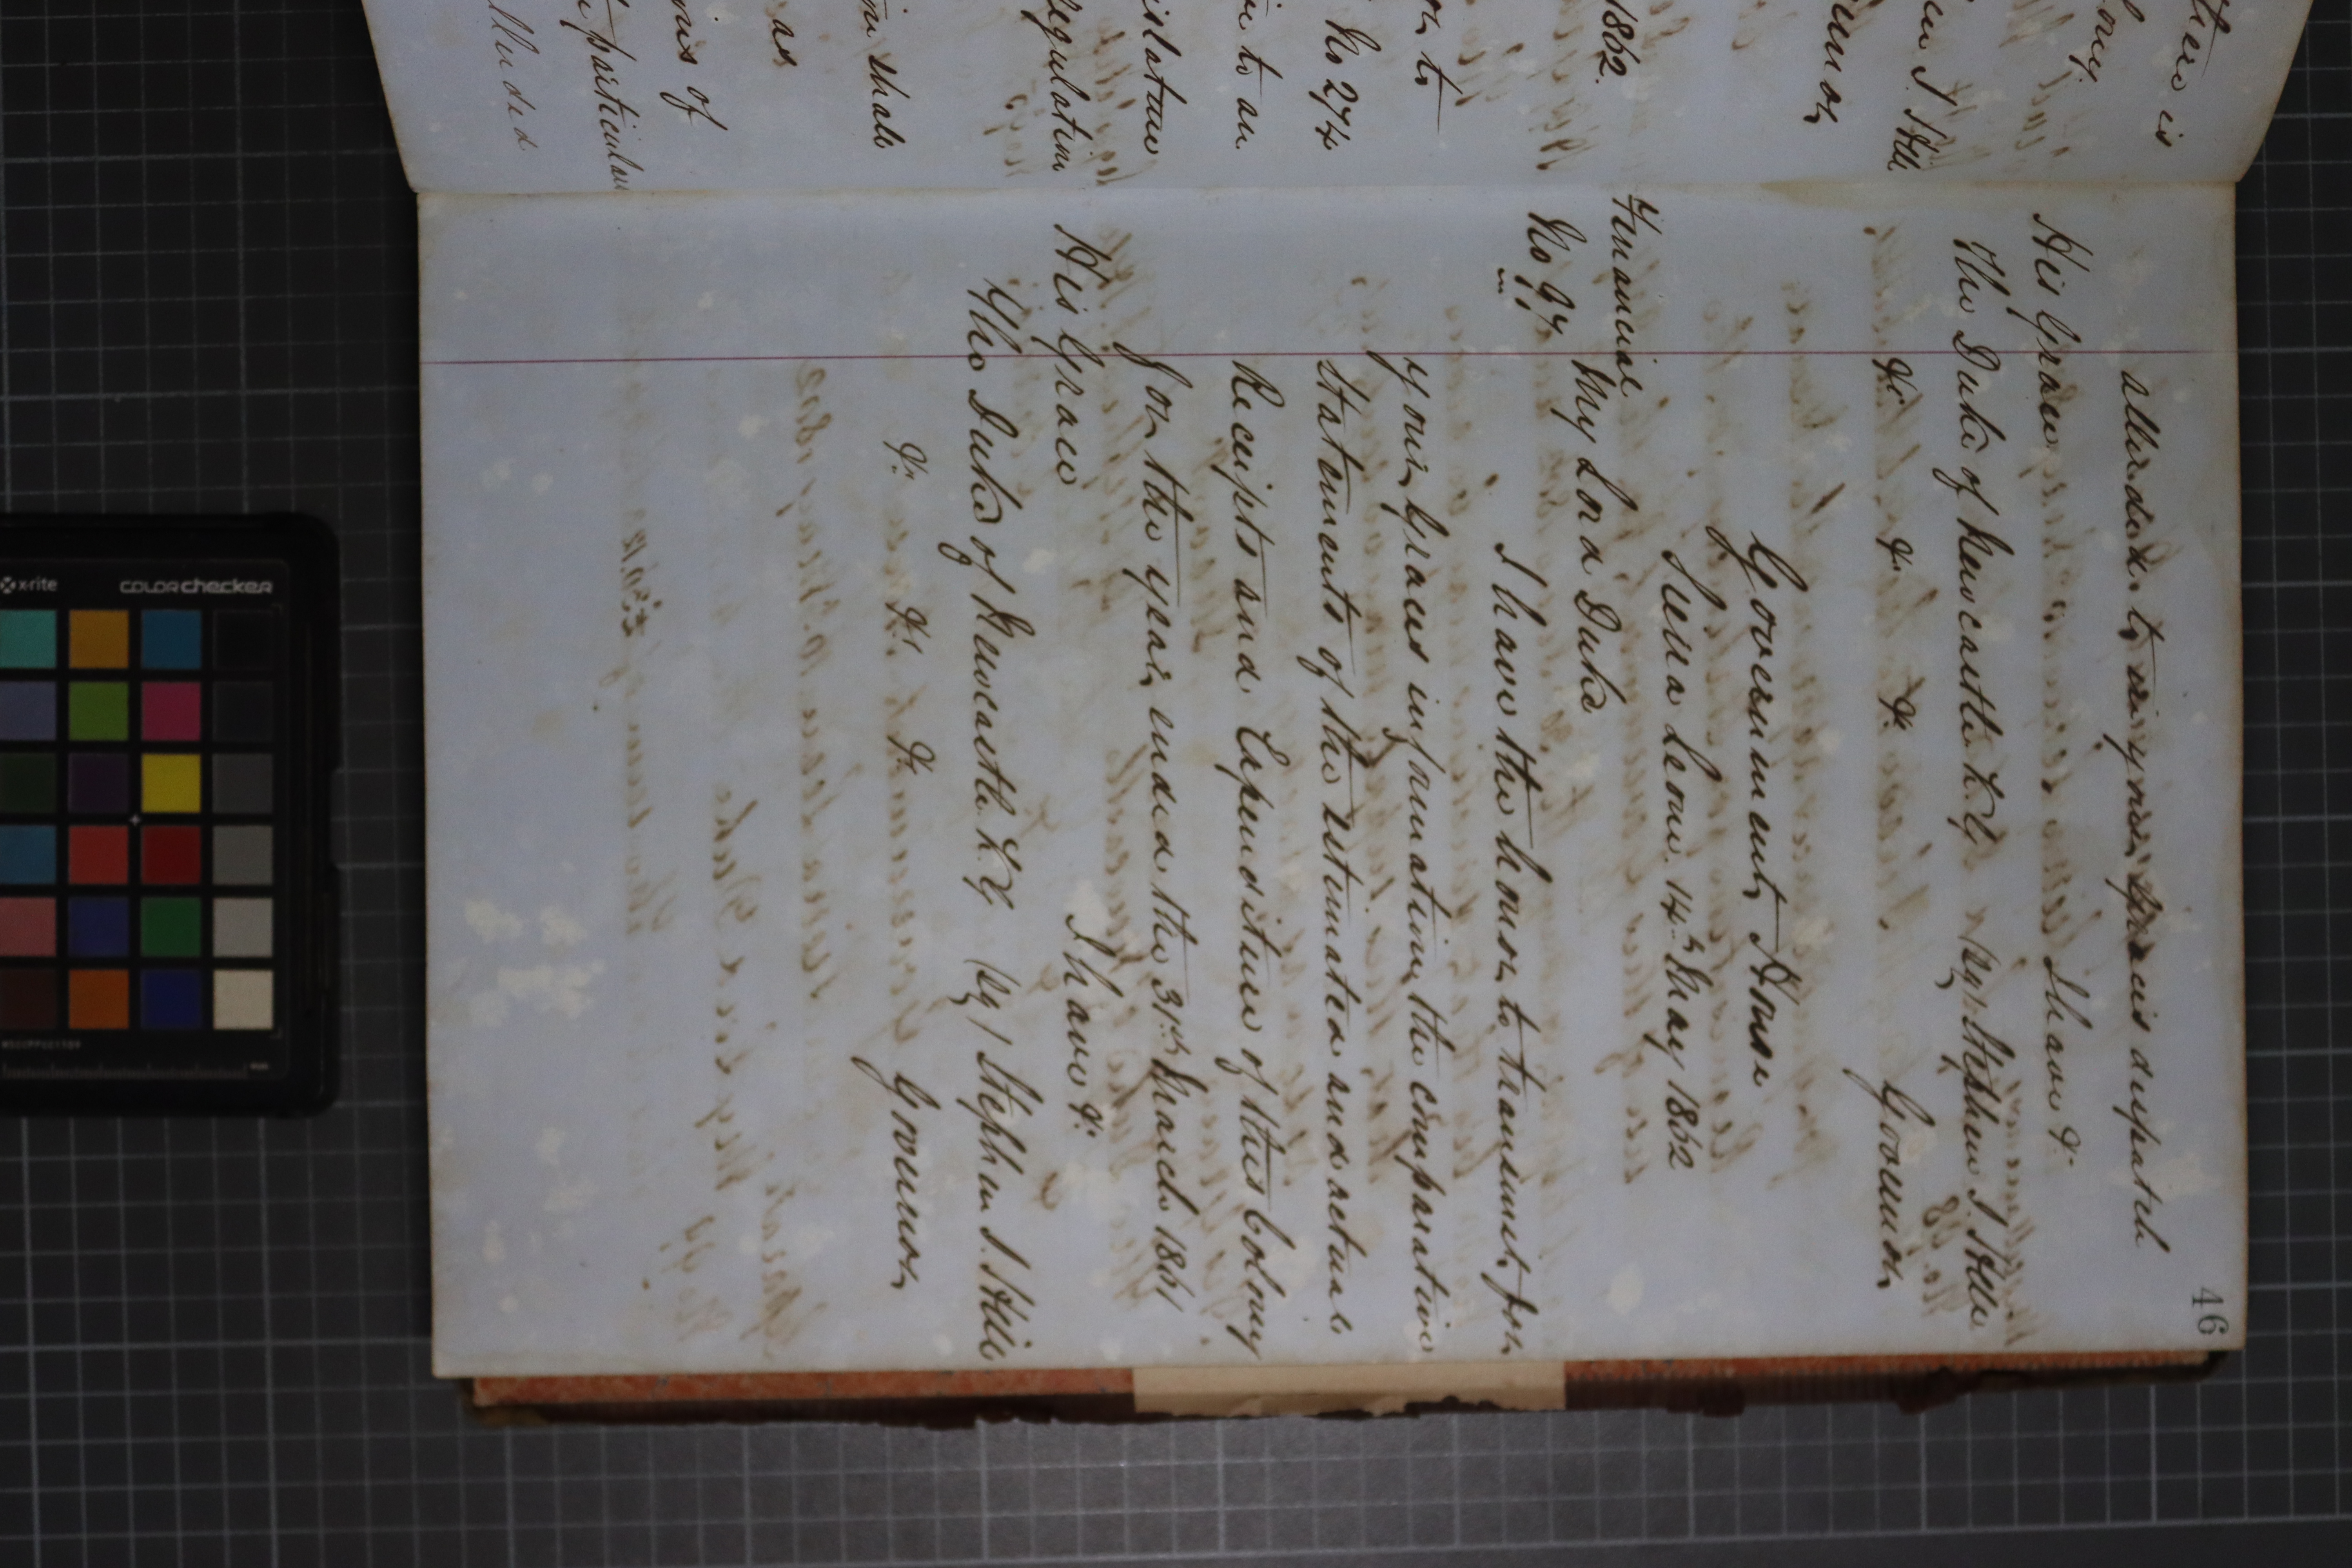 46
alluded to in your Graces despatch
I have &c
His Grace
The Duke of Newcastle K.G. (sg) Stephen J. Hill
&c &c &c Governor
Government House
Sierra Leone 14th May 1862
Financial
No 97
My Lord Duke
I have the honor to transmit, for
your Graces information, the comparative
statements of the estimated and actual
Receipts and Expenditure of this Colony
for the year ended the 31st March 1861
I have &c
His Grace
The Duke of Newcastle K.G. (sg) Stephen J. Hill
&c &c &c Governor
there is
colony
J. Hill
Governor
1862.
or, to
No 274
in to an
islature
regulation
shall
as
ons of
particular
alluded
x-rite
colorchecker